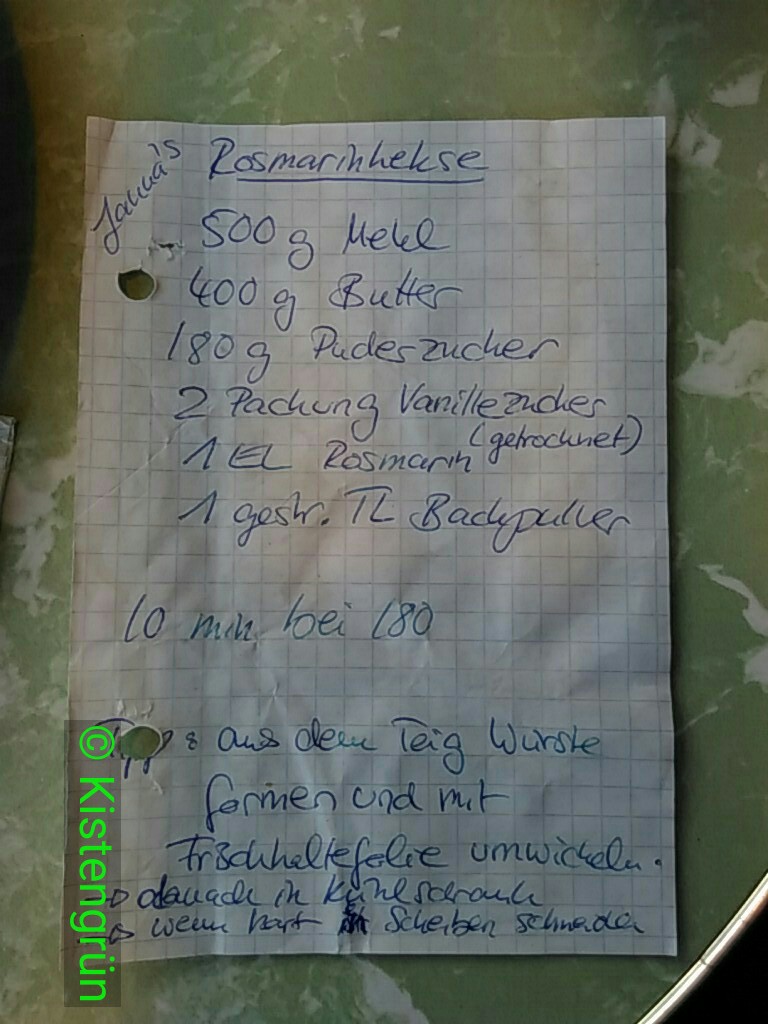 Janna's Rosmarinkekse
500 g Mehl
400 g Butter
180 g Puderzucker
2 Packung Vanillezucker
1 EL Rosmarin (getrocknet)
1 gestr. TL Backpulver
10 min bei 180
: aus dem Teig Würste
formen und mit
Frischhaltefolie umwickeln.
→ danach in Kühlschrank
→ wenn hart in Scheiben schneiden
© Kistengrün